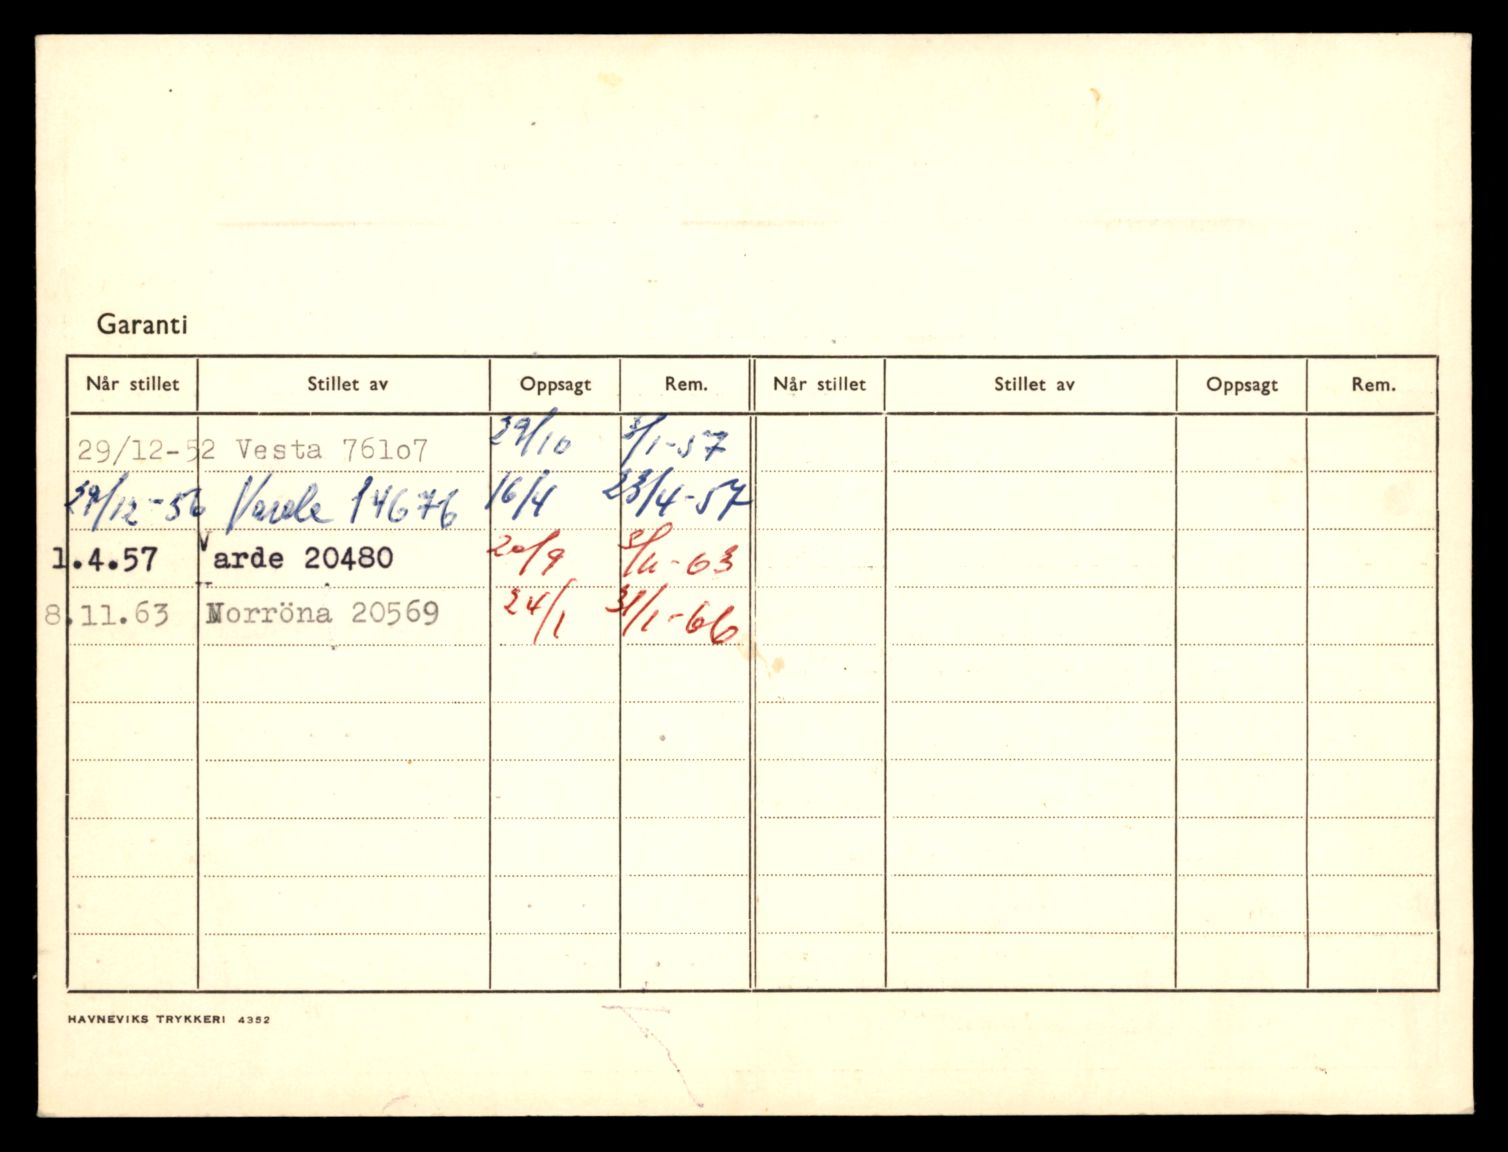 Garanti
Når stillet Stillet av Oppsagt Rem. Når stillet Stillet av Oppsagt Rem.
29/12-52 Vesta 761o7 29/10 3/1-57
29/12-56 Varde 14676 16/4 23/4-57
1.4.57 Varde 20480 20/9 /11-63
8.11.63 Norröna 20569 24/1 31/1-66
HAVNEVIKS TRYKKERI 4352